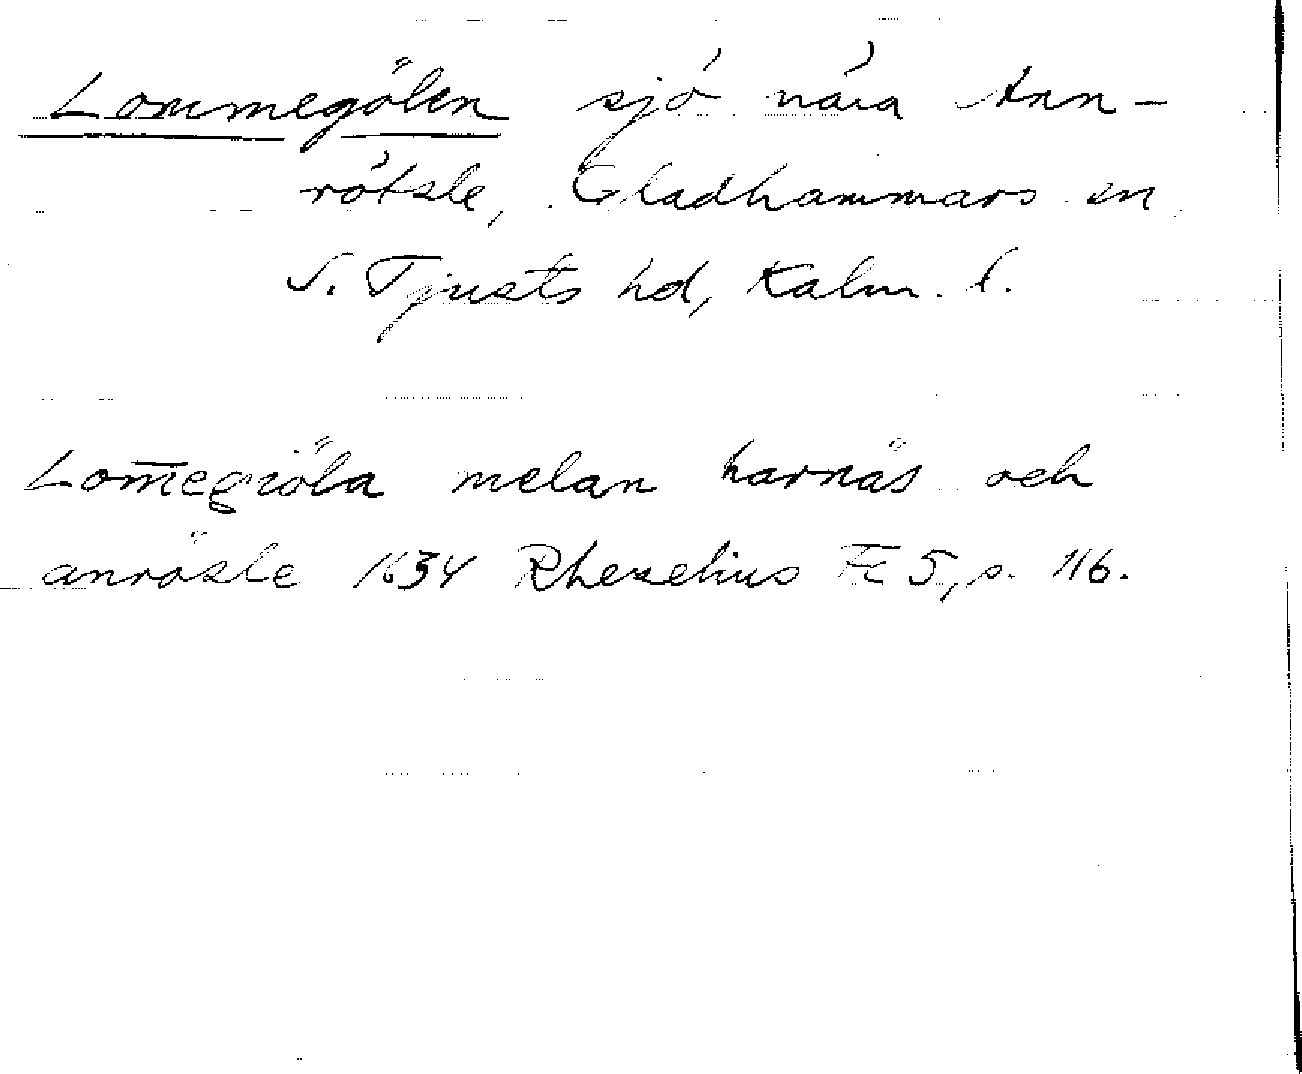 Lommegölen sjö nära Ann-
rötsle, Gladhammars sn
S. Tjusts hd, Kalm. l.
Lom̄egiöla melan harnäs och
anrösle 1634 Rhezelius Fc 5, s. 116.